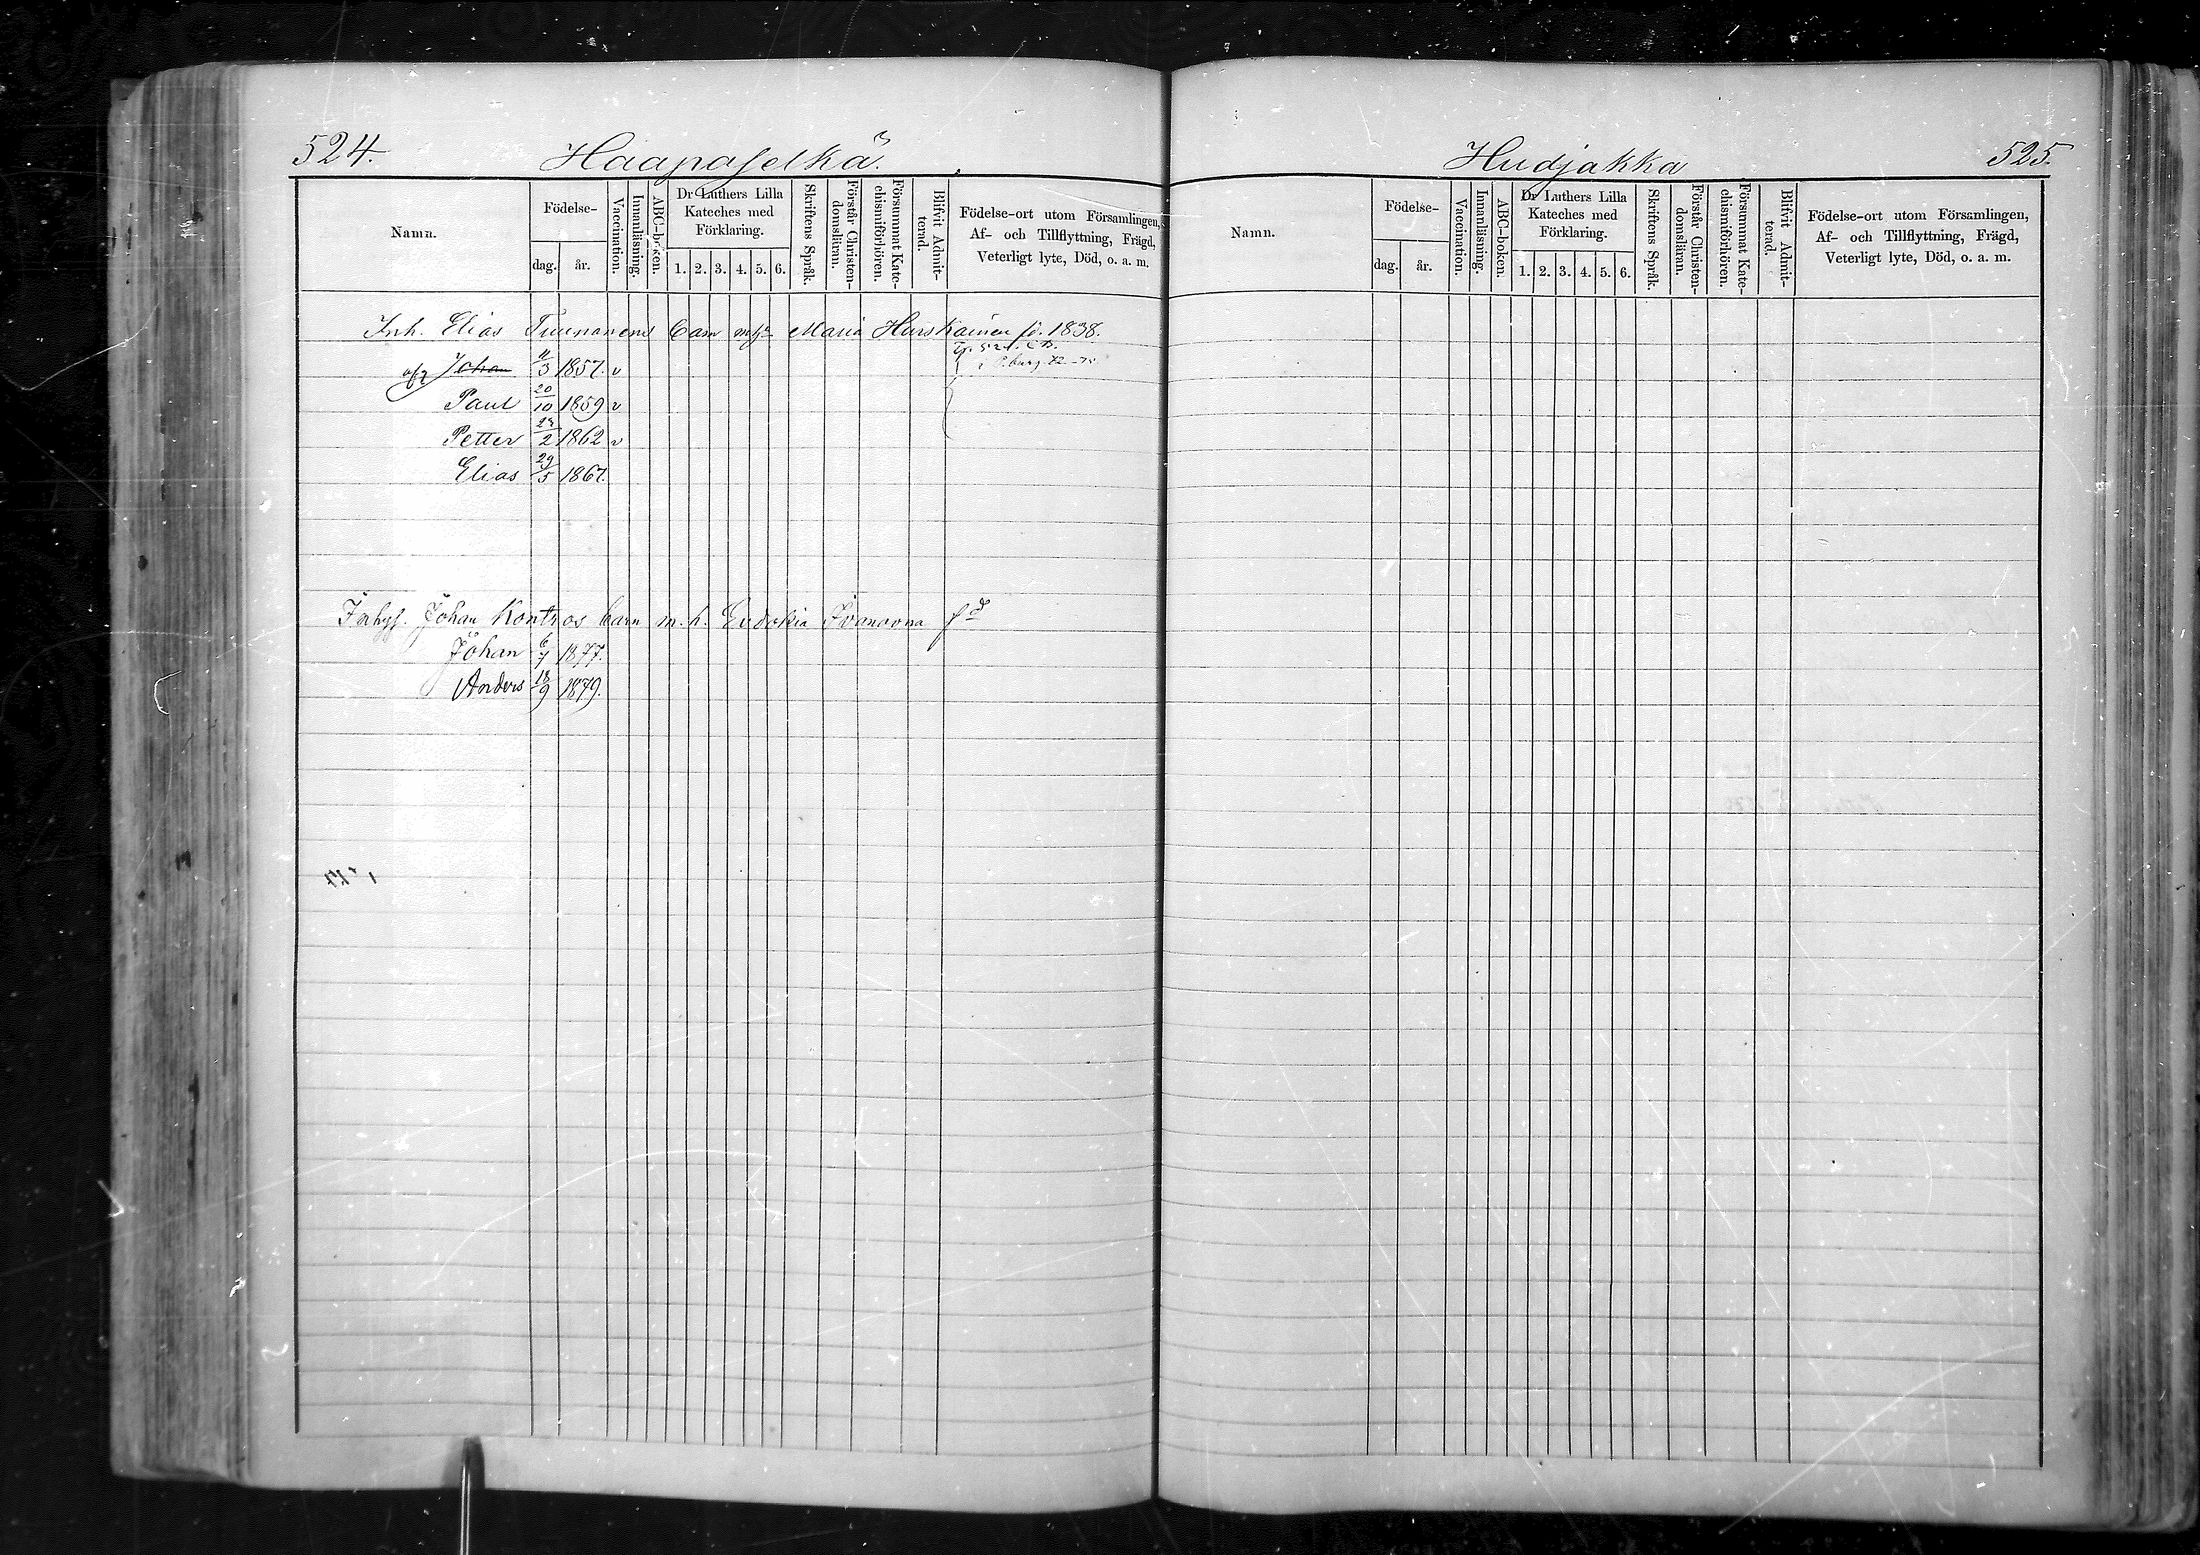 524.
Haapaselkä.
Namn.
Födelse-
dag. år.
Vaccination.
Innanläsning.
ABC-boken.
Dr Luthers Lilla
Kateches med
Förklaring.
1. 2. 3. 4. 5. 6.
Skriftens Språk.
Förstår Christen-
domsläran.
Försummat Kate-
chismiförhören.
Blifvit Admit-
terad.
Födelse-ort utom Församlingen,
Af- och Tillflyttning, Frägd,
Veterligt lyte, Död, o. a. m.
Inh. Elias Tuunanens barn m. h. Maria Hurskainen fd. 1838.
Johan 11/3 1857. v
Paul 20/10 1859 v
Petter 23/2 1862 v
Elias 29/5 1867.
Inhys. Johan Kontros barn m. h. Evdokia Ivanovna fd
Johan 6/7 1877.
Anders 18/9 1879.
Hudjakka
525.
Namn.
Födelse-
dag. år.
Vaccination.
Innanläsning.
ABC-boken.
Dr Luthers Lilla
Kateches med
Förklaring.
1. 2. 3. 4. 5. 6.
Skriftens Språk.
Förstår Christen-
domsläran.
Försummat Kate-
chismiförhören.
Blifvit Admit-
terad.
Födelse-ort utom Församlingen,
Af- och Tillflyttning, Frägd,
Veterligt lyte, Död, o. a. m.